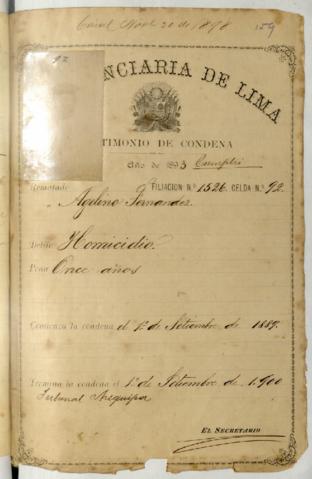 Novbe 20 de 1898
159
92
NCIARIA DE LIMA
TIMONIO DE CONDENA
Año de 1893 Cumplió
Rematado FILIACION N.º 1526 CELDA N.º 92.
Agelino Fernandez.
Delito Homicidio.
Pena Once años
Comienza la condena el 1º de Setiembre de 1889.
Termina la condena el 1º de Setiembre de 1.900
Tribunal Arequipa
EL SECRETARIO